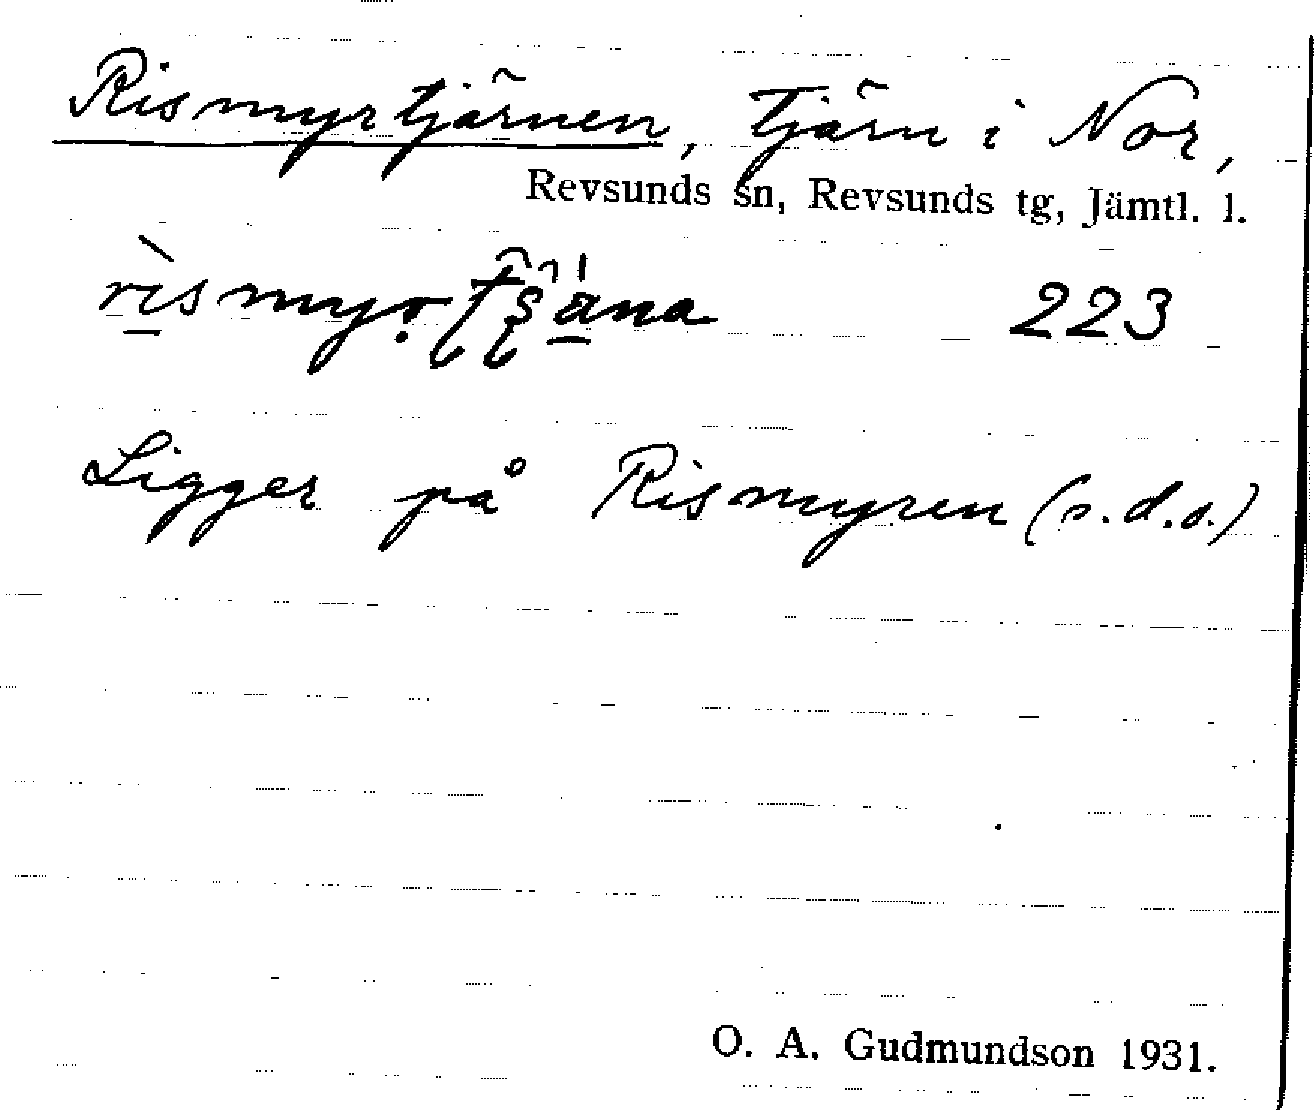 Rismyrtjärnen, tjärn i Nor,
Revsunds sn, Revsunds tg, Jämtl. l.
223
Ligger på Rismyren (s.d.o.)
O. A. Gudmundson 1931.